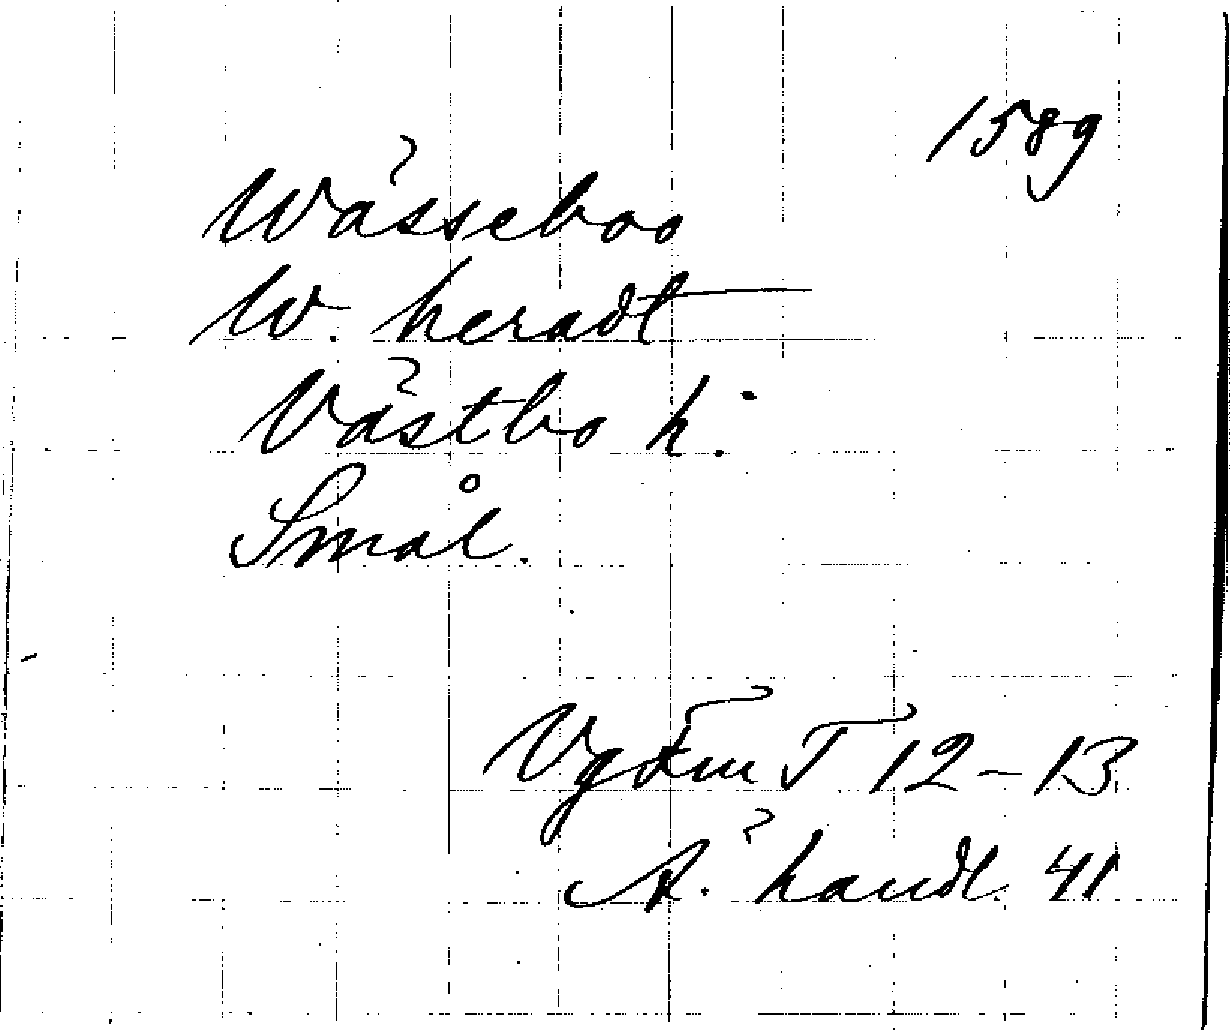 1589
Wässeboo
W. heradt
Västbo h.
Smål.
Vg Fm T 12-13
Ä. handl. 41